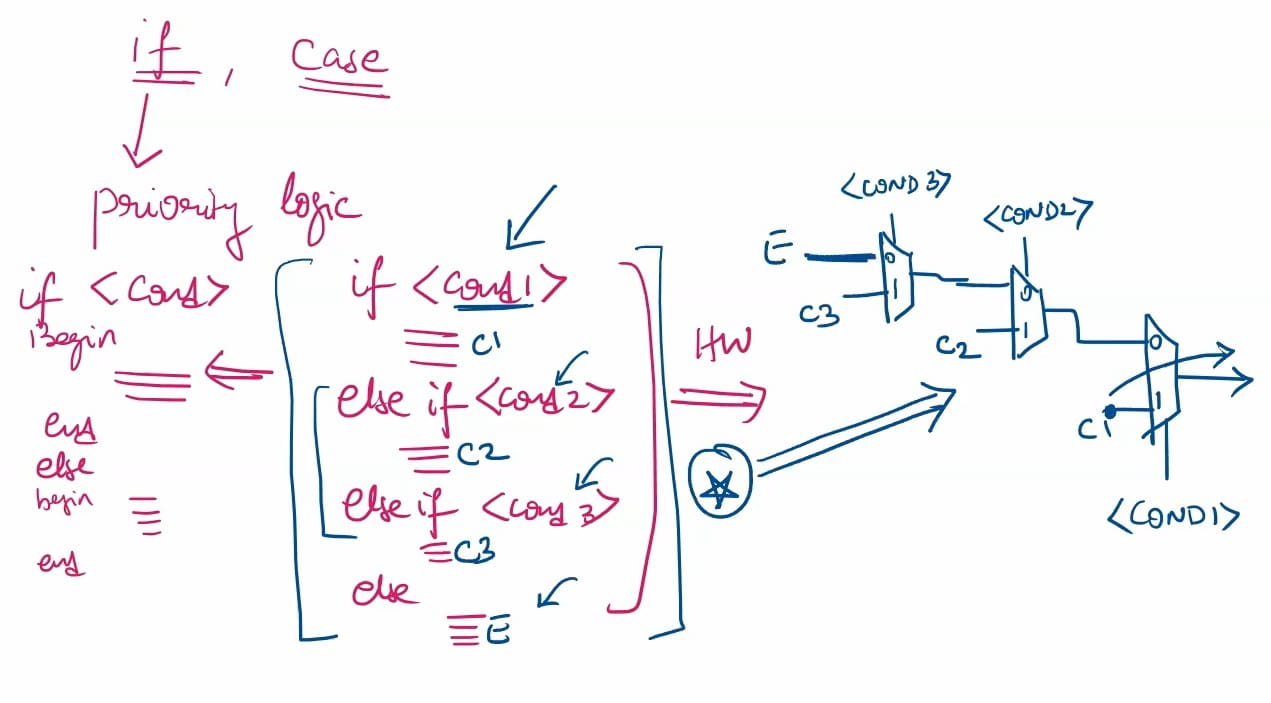 if, Case
priority logic
if <Cond>
Begin
end
else
begin
end
if <Cond1>
C1
else if <Cond2>
C2
else if <Cond3>
C3
else
E
HW
<COND3>
E
0
1
C3
<COND2>
0
1
C2
0
1
C1
<COND1>